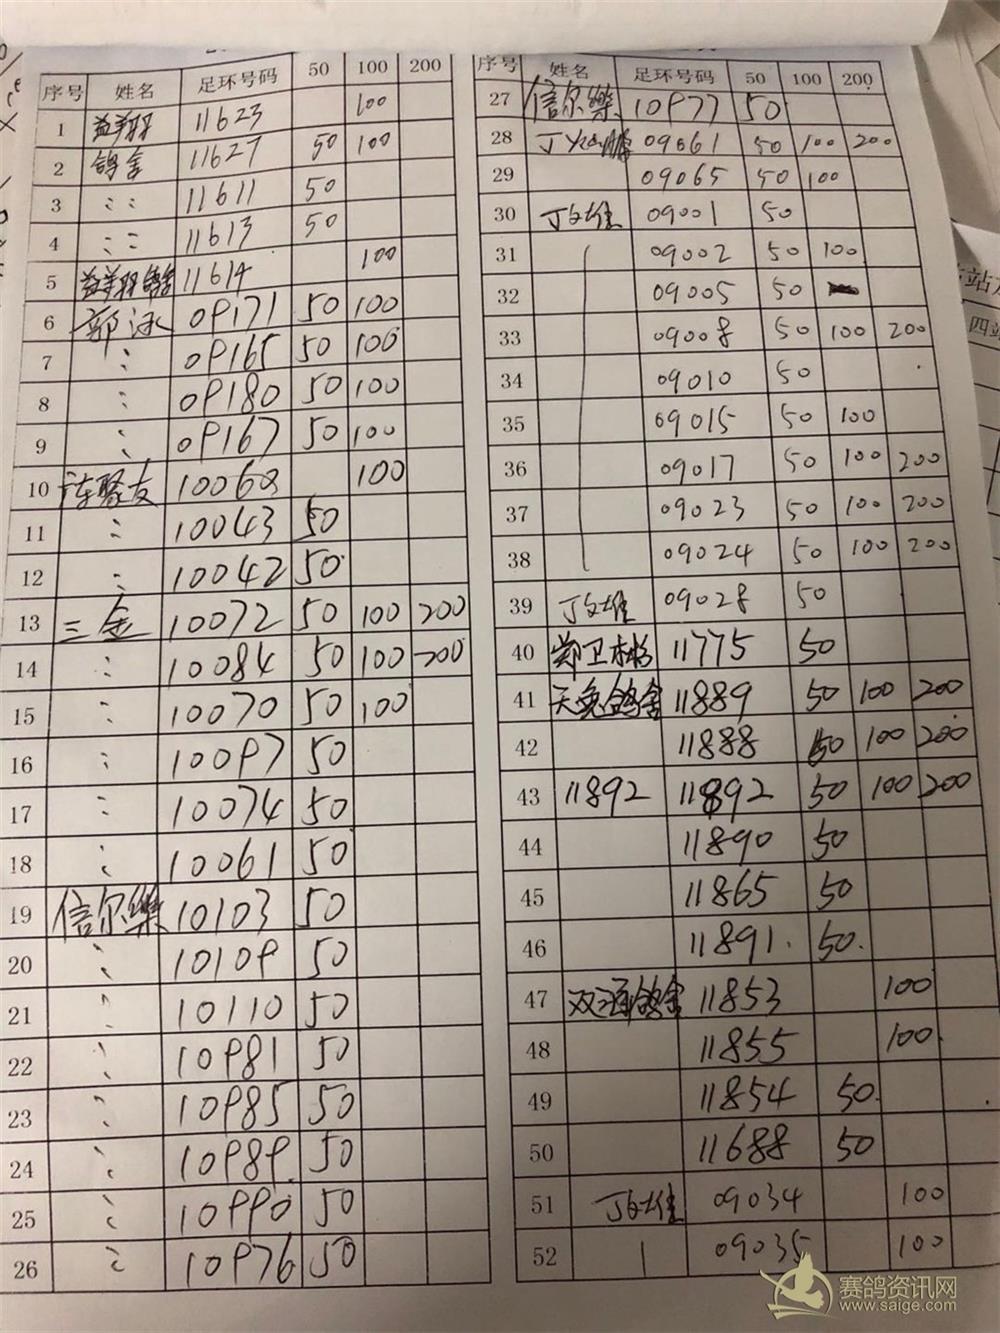 序号 姓名 足环号码 50 100 200
1 益翔 11623 100
2 鸽舍 11627 50 100
3 〃 11611 50
4 〃 11613 50
5 益翔鸽舍 11614 100
6 郭泳 09171 50 100
7 〃 09165 50 100
8 〃 09180 50 100
9 〃 09167 50 100
10 陈聚友 10068 100
11 〃 10043 50
12 〃 10042 50
13 三金 10072 50 100 200
14 〃 10084 50 100 200
15 〃 10070 50 100
16 〃 10097 50
17 〃 10074 50
18 〃 10061 50
19 信尔乐 10103 50
20 〃 10109 50
21 〃 10110 50
22 〃 10981 50
23 〃 10985 50
24 〃 10989 50
25 〃 10990 50
26 〃 10976 50
序号 姓名 足环号码 50 100 200
27 信尔樂 10977 50
28 丁 09061 50 100 200
29 09065 50 100
30 丁文雄 09001 50
31 09002 50 100
32 09005 50
33 09008 50 100 200
34 09010 50
35 09015 50 100
36 09017 50 100 200
37 09023 50 100 200
38 09024 50 100 200
39 丁文雄 09028 50
40 郑卫彬 11775 50
41 天兔鸽舍 11889 50 100 200
42 11888 50 100 200
43 11892 11892 50 100 200
44 11890 50
45 11865 50
46 11891 50
47 双源鸽舍 11853 100
48 11855 100
49 11854 50
50 11688 50
51 丁文雄 09034 100
52 09035 100
站
四站
赛鸽资讯网
www.saige.com